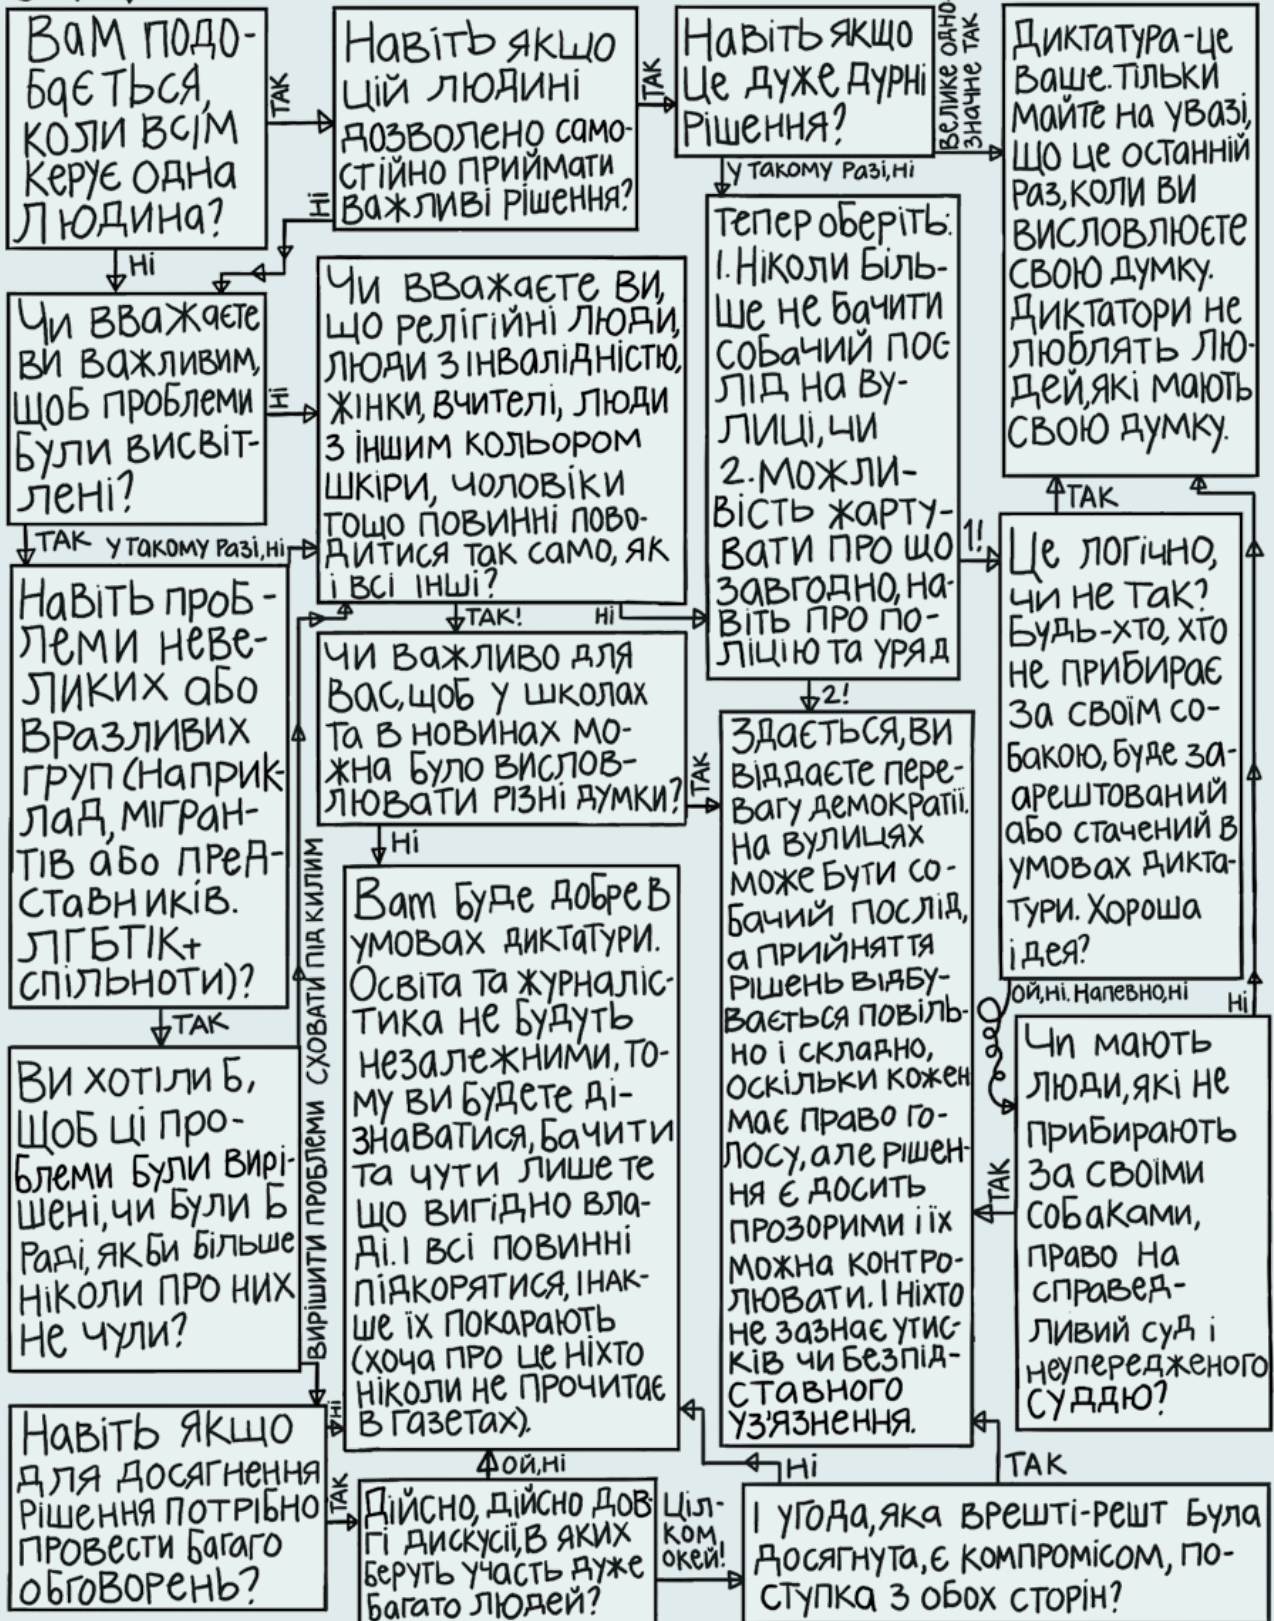 Вам подо-
бається,
коли всім
керує одна
людина?
ТАК
Навіть якщо
цій людині
дозволено само-
стійно приймати
важливі рішення?
ТАК
Навіть якщо
це дуже дурні
рішення?
Велике одно-
значне так
Диктатура-це
ваше. Тільки
майте на увазі,
що це останній
раз, коли ви
висловлюєте
свою думку.
Диктатори не
люблять лю-
дей, які мають
свою думку.
Ні
Ні
у такому разі, ні
Чи вважаєте
ви важливим,
щоб проблеми
були висвіт-
лені?
Ні
Чи вважаєте ви,
що релігійні люди,
люди з інвалідністю,
жінки, вчителі, люди
з іншим кольором
шкіри, чоловіки
тощо повинні пово-
дитися так само, як
і всі інші?
Тепер оберіть:
1. Ніколи біль-
ше не бачити
собачий пос-
лід на ву-
лиці, чи
2. Можли-
вість жарту-
вати про що
завгодно, на-
віть про по-
ліцію та уряд
1!
ТАК
Це логічно,
чи не так?
Будь-хто, хто
не прибирає
за своїм со-
бакою, буде за-
арештований
або стачений в
умовах дикта-
тури. Хороша
ідея?
ТАК
у такому разі, ні
Навіть проб-
леми неве-
ликих або
вразливих
груп (наприк-
лад, мігран-
тів або пред-
ставників.
ЛГБТІК+
спільноти)?
ТАК!
Ні
Чи важливо для
вас, щоб у школах
та в новинах мо-
жна було вислов-
лювати різні думки?
ТАК
2!
Здається, ви
віддаєте пере-
вагу демократії.
На вулицях
може бути со-
бачий послід,
а прийняття
рішень відбу-
вається повіль-
но і складно,
оскільки кожен
має право го-
лосу, але рішен-
ня є досить
прозорими і їх
можна контро-
лювати. І ніхто
не зазнає утис-
ків чи безпід-
ставного
ув'язнення.
Ні
Вам буде добре в
умовах диктатури.
Освіта та журналіс-
тика не будуть
незалежними, то-
му ви будете ді-
знаватися, бачити
та чути лише те
що вигідно вла-
ді. І всі повинні
підкорятися, інак-
ше їх покарають
(хоча про це ніхто
ніколи не прочитає
в газетах).
Ой, ні. Напевно, ні
Ні
Чи мають
люди, які не
прибирають
за своїми
собаками,
право на
справед-
ливий суд і
неупередженого
суддю?
ТАК
ТАК
Ви хотіли б,
щоб ці про-
блеми були вирі-
шені, чи були б
раді, якби більше
ніколи про них
не чули?
Сховати під килим
Вирішити проблеми
Навіть якщо
для досягнення
рішення потрібно
провести багаго
обговорень?
Ні
ТАК
Ой, ні
Дійсно, дійсно дов-
гі дискусії, в яких
беруть участь дуже
багато людей?
Ціл-
ком
окей!
Ні
ТАК
І угода, яка врешті-решт була
досягнута, є компромісом, по-
ступка з обох сторін?